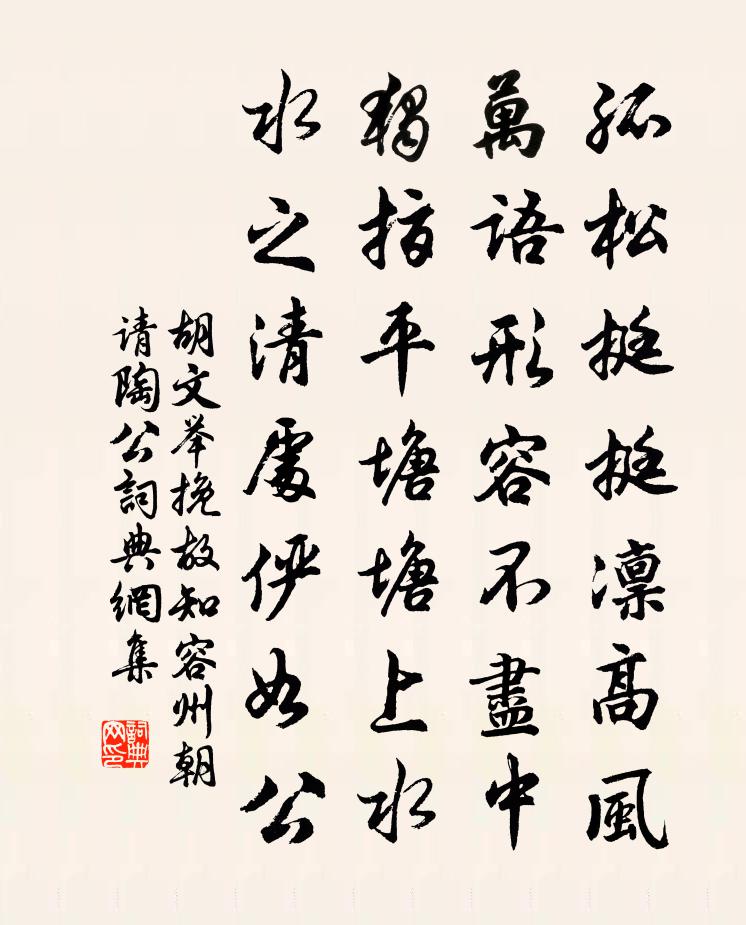 孤松挺挺凛高風
萬語形容不盡中
獨指平塘塘上水
水之清處儼如公
胡文举挽故知容州朝
请陶公詞典網集
詞典
网印